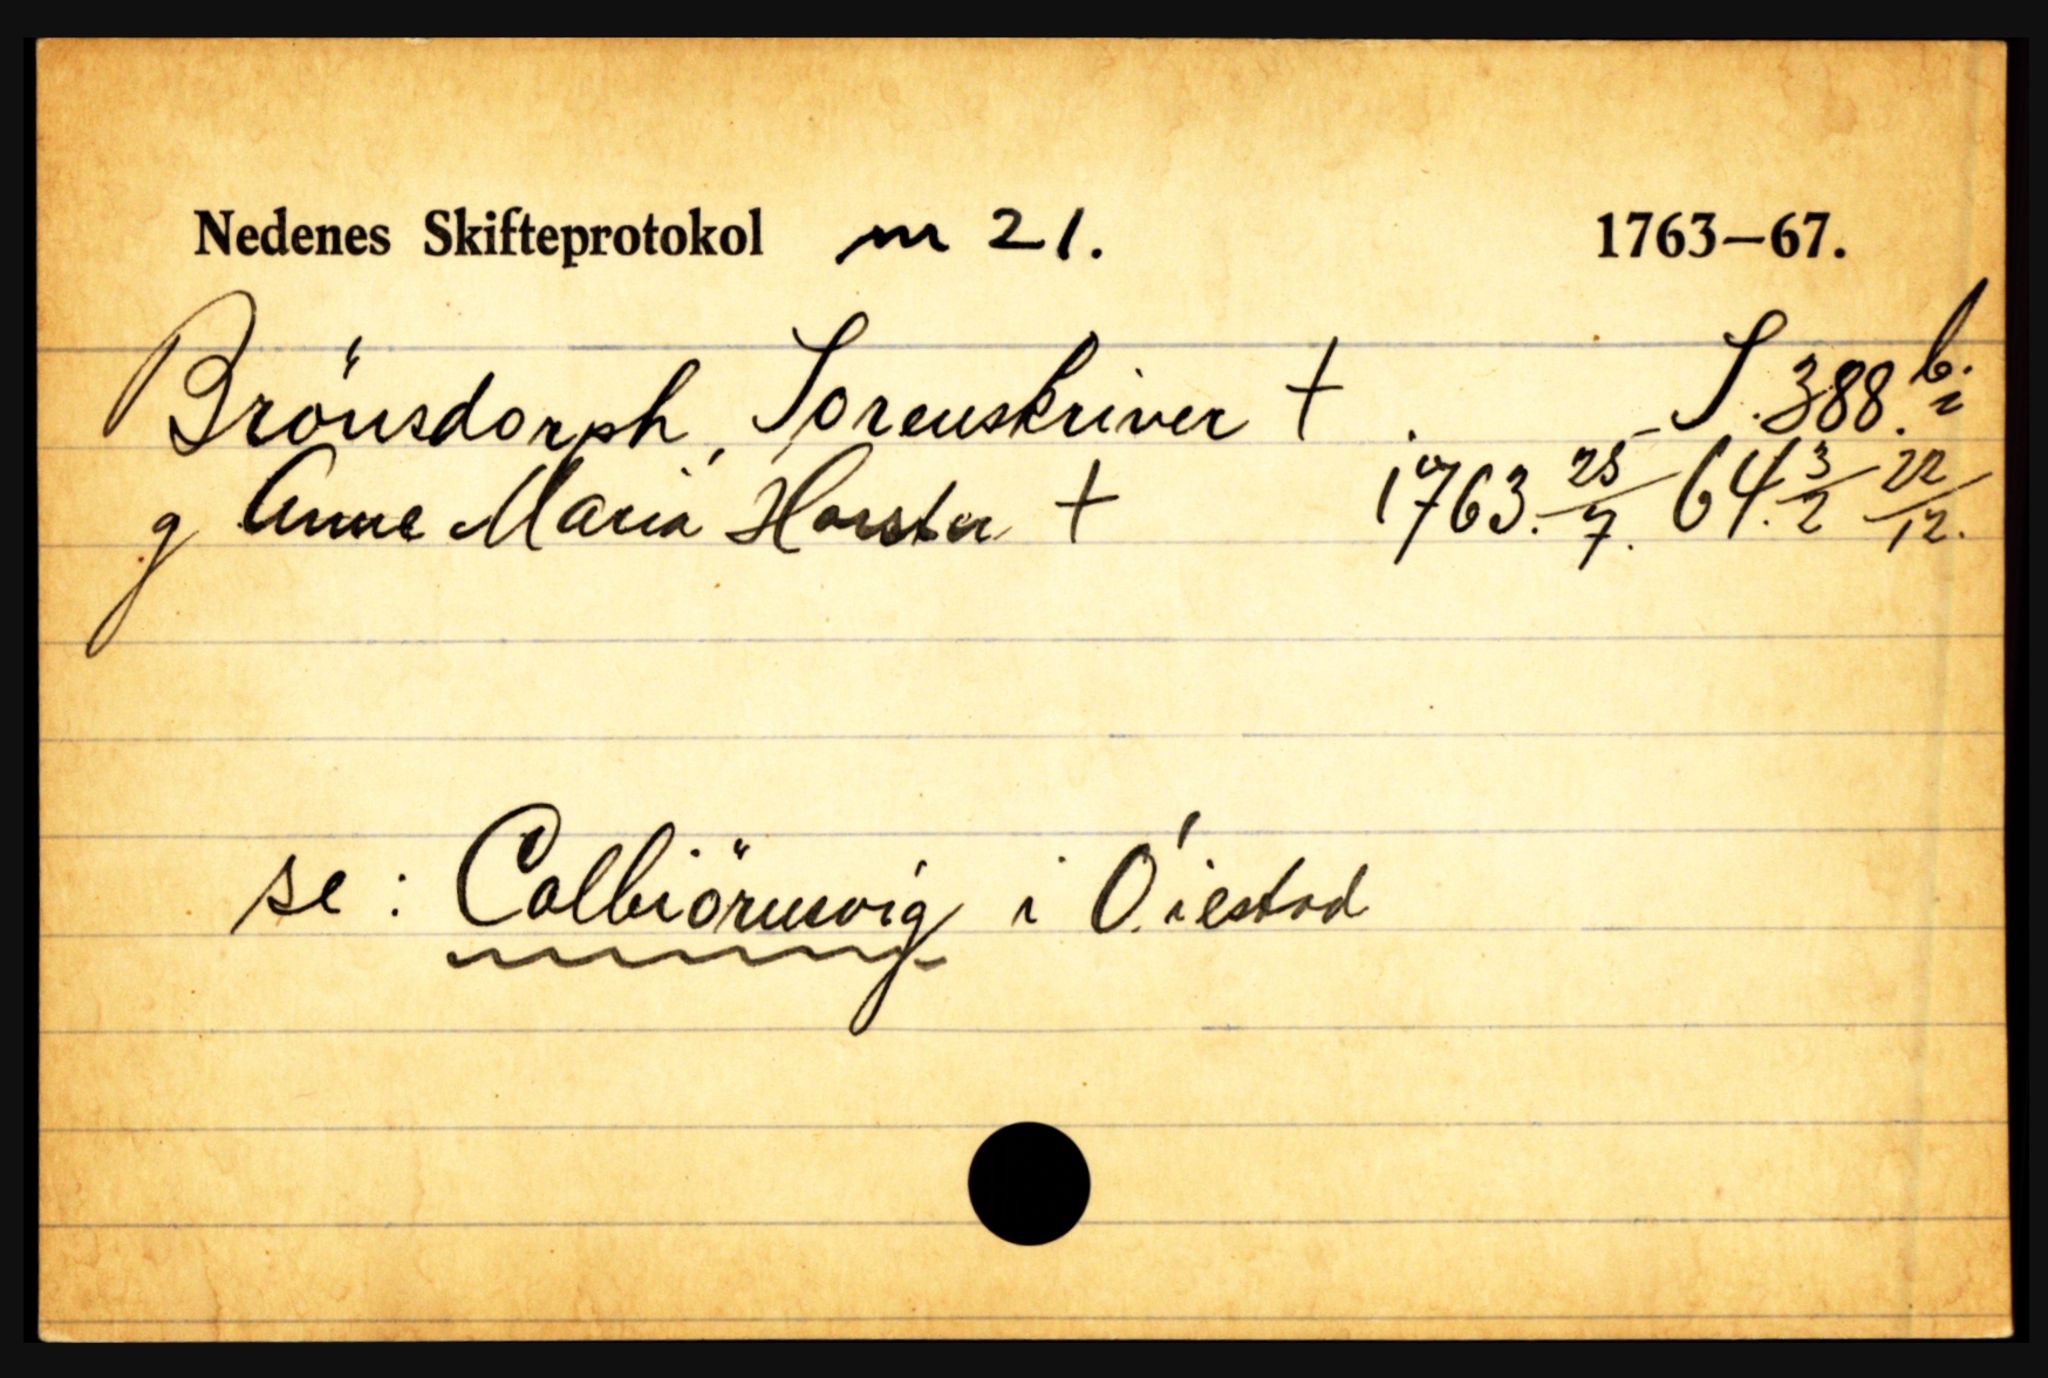 Nedenes Skifteprotokol nr 21. 1763—67.
Brönsdorph, Sorenskriver † S. 388.b.
g Anne Maria Horster † 1763. 25/7. 64. 3/2 22/12.
se: Colbiörnsvig i Öiestad